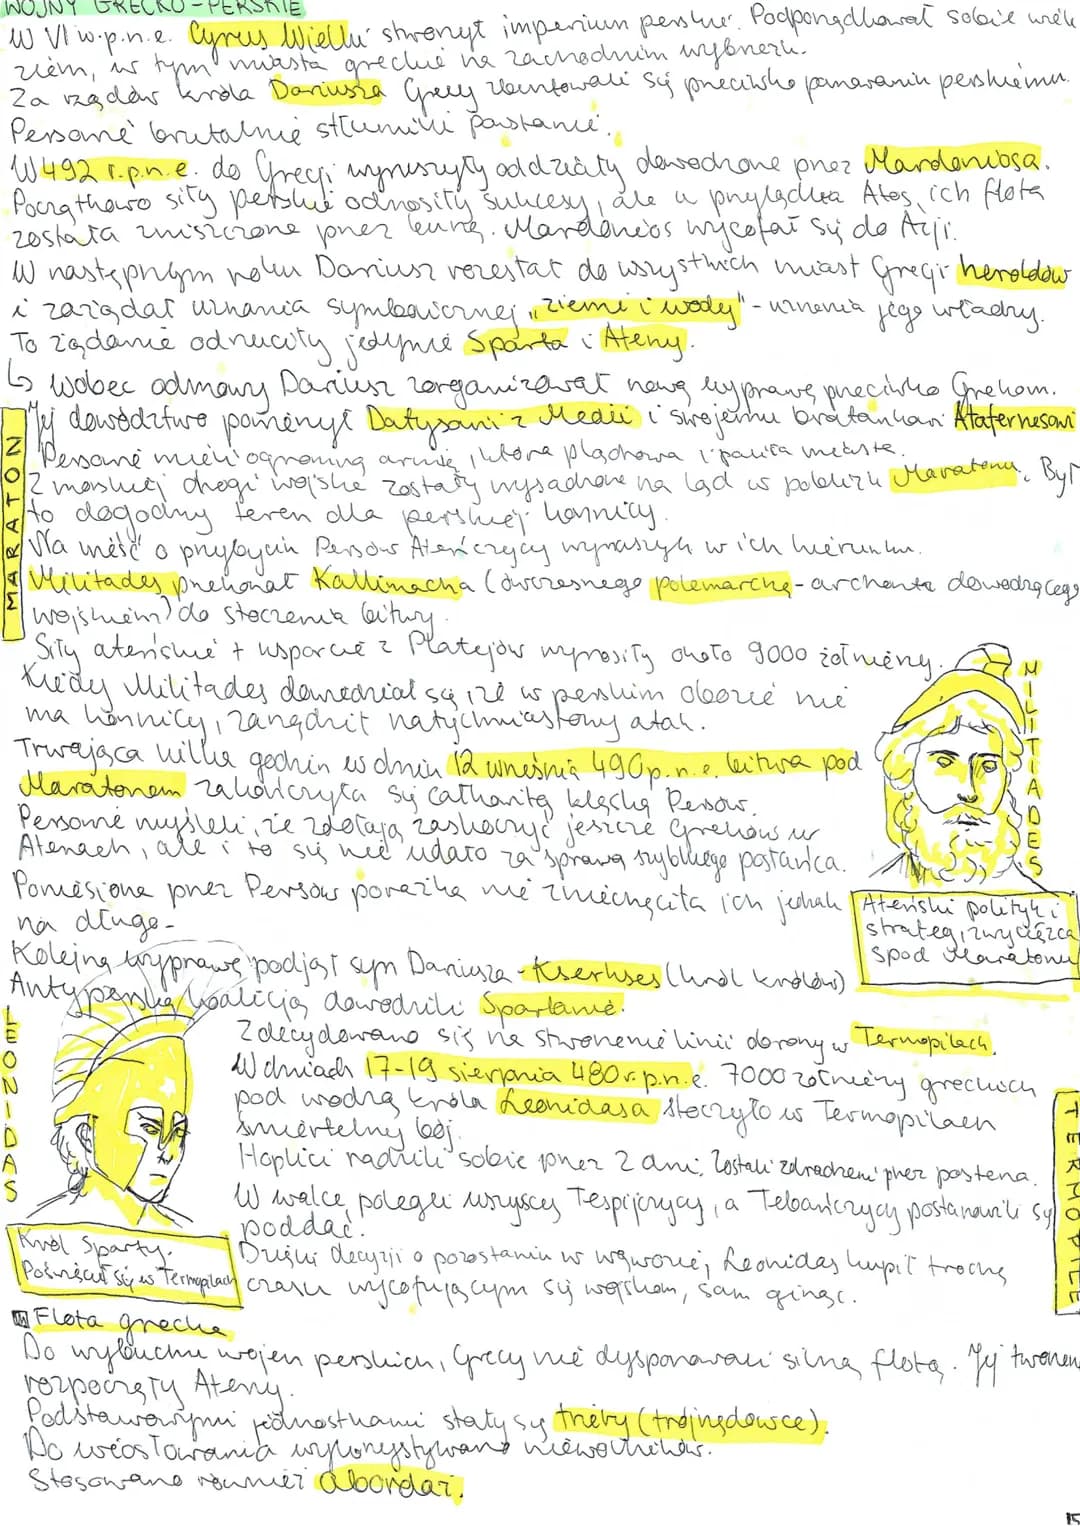 WOJNY GRECKO-PERSKIE
W VI w.p.n.e. Cyrus Wielki stworzył imperium perskie. Podporządkował sobie wiele
ziem, w tym miasta greckie na zachodnim wybrzeżu.
Za rządów króla Dariusza Grecy zbuntowali się przeciwko panowaniu perskiemu.
Persowie brutalnie stłumili powstanie.
W 492 r.p.n.e. do Grecji wyruszyły oddziały dowodzone przez Mardoniosa.
Początkowo siły perskie odnosiły sukcesy, ale u przylądka Atos, ich flota
została zniszczona przez burzę. Mardonios wycofał się do Azji.
W następnym roku Dariusz rozesłał do wszystkich miast Grecji heroldów
i zażądał uznania symbolicznej „ziemi i wody" - uznania jego władzy.
To żądanie odrzuciły jedynie Sparta i Ateny.
↳ Wobec odmowy Dariusz zorganizował nową wyprawę przeciwko Grekom.
Jej dowództwo powierzył Datysowi z Medii i swojemu bratankowi Atafernesowi
Persowie mieli ogromną armię, która plądrowała i paliła miasta.
Z morskiej drogi wojska zostały wysadzone na ląd w pobliżu Maratonu. Był
to dogodny teren dla perskiej konnicy.
Na wieść o przybyciu Persów Ateńczycy wyruszyli w ich kierunku.
Militades przekonał Kallimacha (ówczesnego polemarcha - archonta dowodzącego
wojskiem) do stoczenia bitwy.
MARATON
Siły ateńskie + wsparcie z Platejów wynosiły około 9000 żołnierzy.
Kiedy Militades dowiedział się, że w perskim obozie nie
ma konnicy, zarządził natychmiastowy atak.
Trwająca kilka godzin w dniu 12 września 490 p.n.e. bitwa pod
Maratonem zakończyła się całkowitą klęską Persów.
Persowie myśleli, że zdołają zaskoczyć jeszcze Greków w
Atenach, ale i to się nie udało za sprawą szybkiego posłańca.
MILITIADES
Ateński polityk i
strateg, zwycięzca
spod Maratonu
Poniesiona przez Persów porażka nie zniechęciła ich jednak
na długo-
Kolejną wyprawę podjął syn Dariusza - Kserkses (król królów)
Antyperską koalicją dowodzili Spartanie.
Zdecydowano się na stworzenie linii obrony w Termopilach.
W dniach 17-19 sierpnia 480 r.p.n.e. 7000 żołnierzy greckich
pod wodzą króla Leonidasa stoczyło w Termopilach
śmiertelny bój.
Hoplici radzili sobie przez 2 dni. Zostali zdradzeni przez
W walce polegli wszyscy Tespijczycy, a Tebańczycy postanowili się
poddać.
Dzięki decyzji o pozostaniu w wąwozie, Leonidas kupił trochę
czasu wycofującym się wojskom, sam ginąc.
TERMOPILE
LEONIDAS
Król Sparty.
Poświęcił się w Termopilach
Flota grecka
Do wybuchu wojen perskich, Grecy nie dysponowali silną flotą. Jej tworzenie
rozpoczęły Ateny.
Podstawowymi jednostkami stały się triery (trójrzędowce).
Do wiosłowania wykorzystywano niewolników.
Stosowano również abordaż.
15